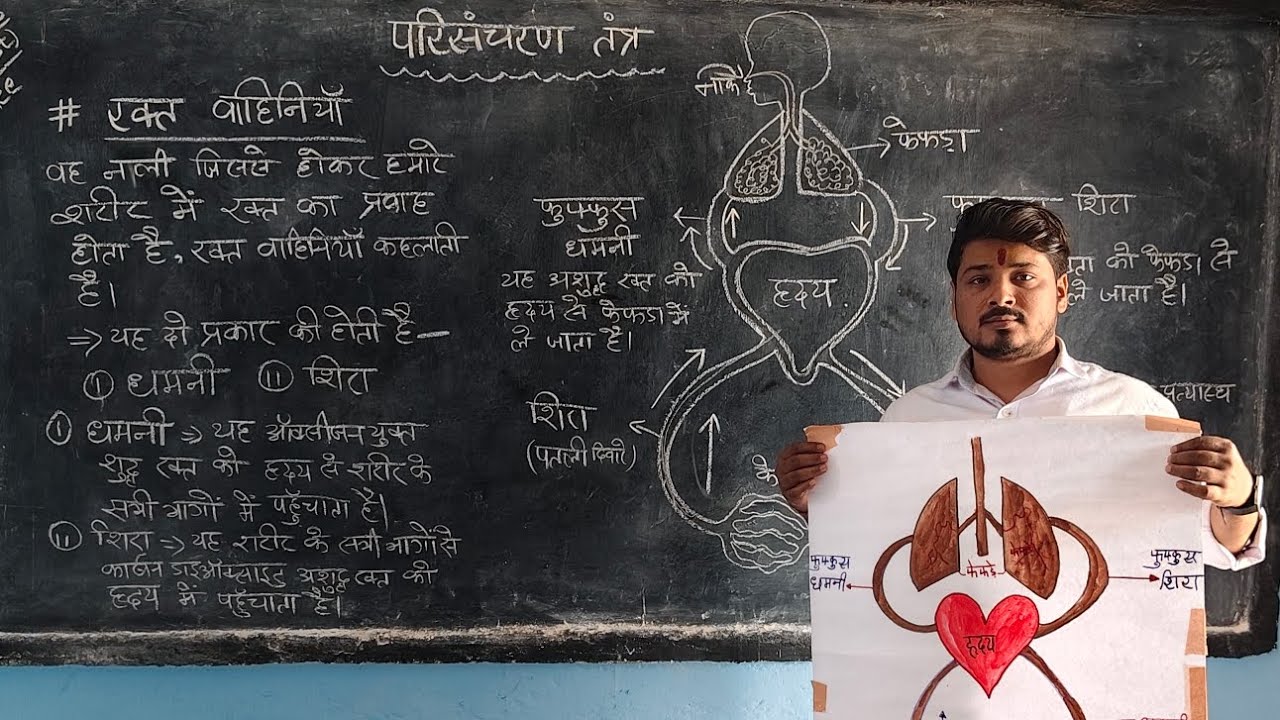 परिसंचरण तंत्र
# रक्त वाहिनियाँ
वह नाली जिससे होकर हमारे
शरीर में रक्त का प्रवाह
होता है, रक्त वाहिनियाँ कहलाती
है।
⇒ यह दो प्रकार की होती है –
① धमनी ⑪ शिरा
① धमनी ⇒ यह ऑक्सीजन युक्त
शुद्ध रक्त को हृदय से शरीर के
सभी भागों में पहुँचाता है।
⑪ शिरा ⇒ यह शरीर के सभी भागों से
कार्बन डाईऑक्साइड अशुद्ध रक्त को
हृदय में पहुँचाता है।
फेफड़ा
फुफ्फुस
धमनी
यह अशुद्ध रक्त को
हृदय से फेफड़ा में
ले जाता है।
शिरा
(पतली दिवारे)
हृदय
शिरा
को फेफड़ा से
ले जाता है।
फुफ्फुस
धमनी
फेफड़े
फुफ्फुस
शिरा
हृदय